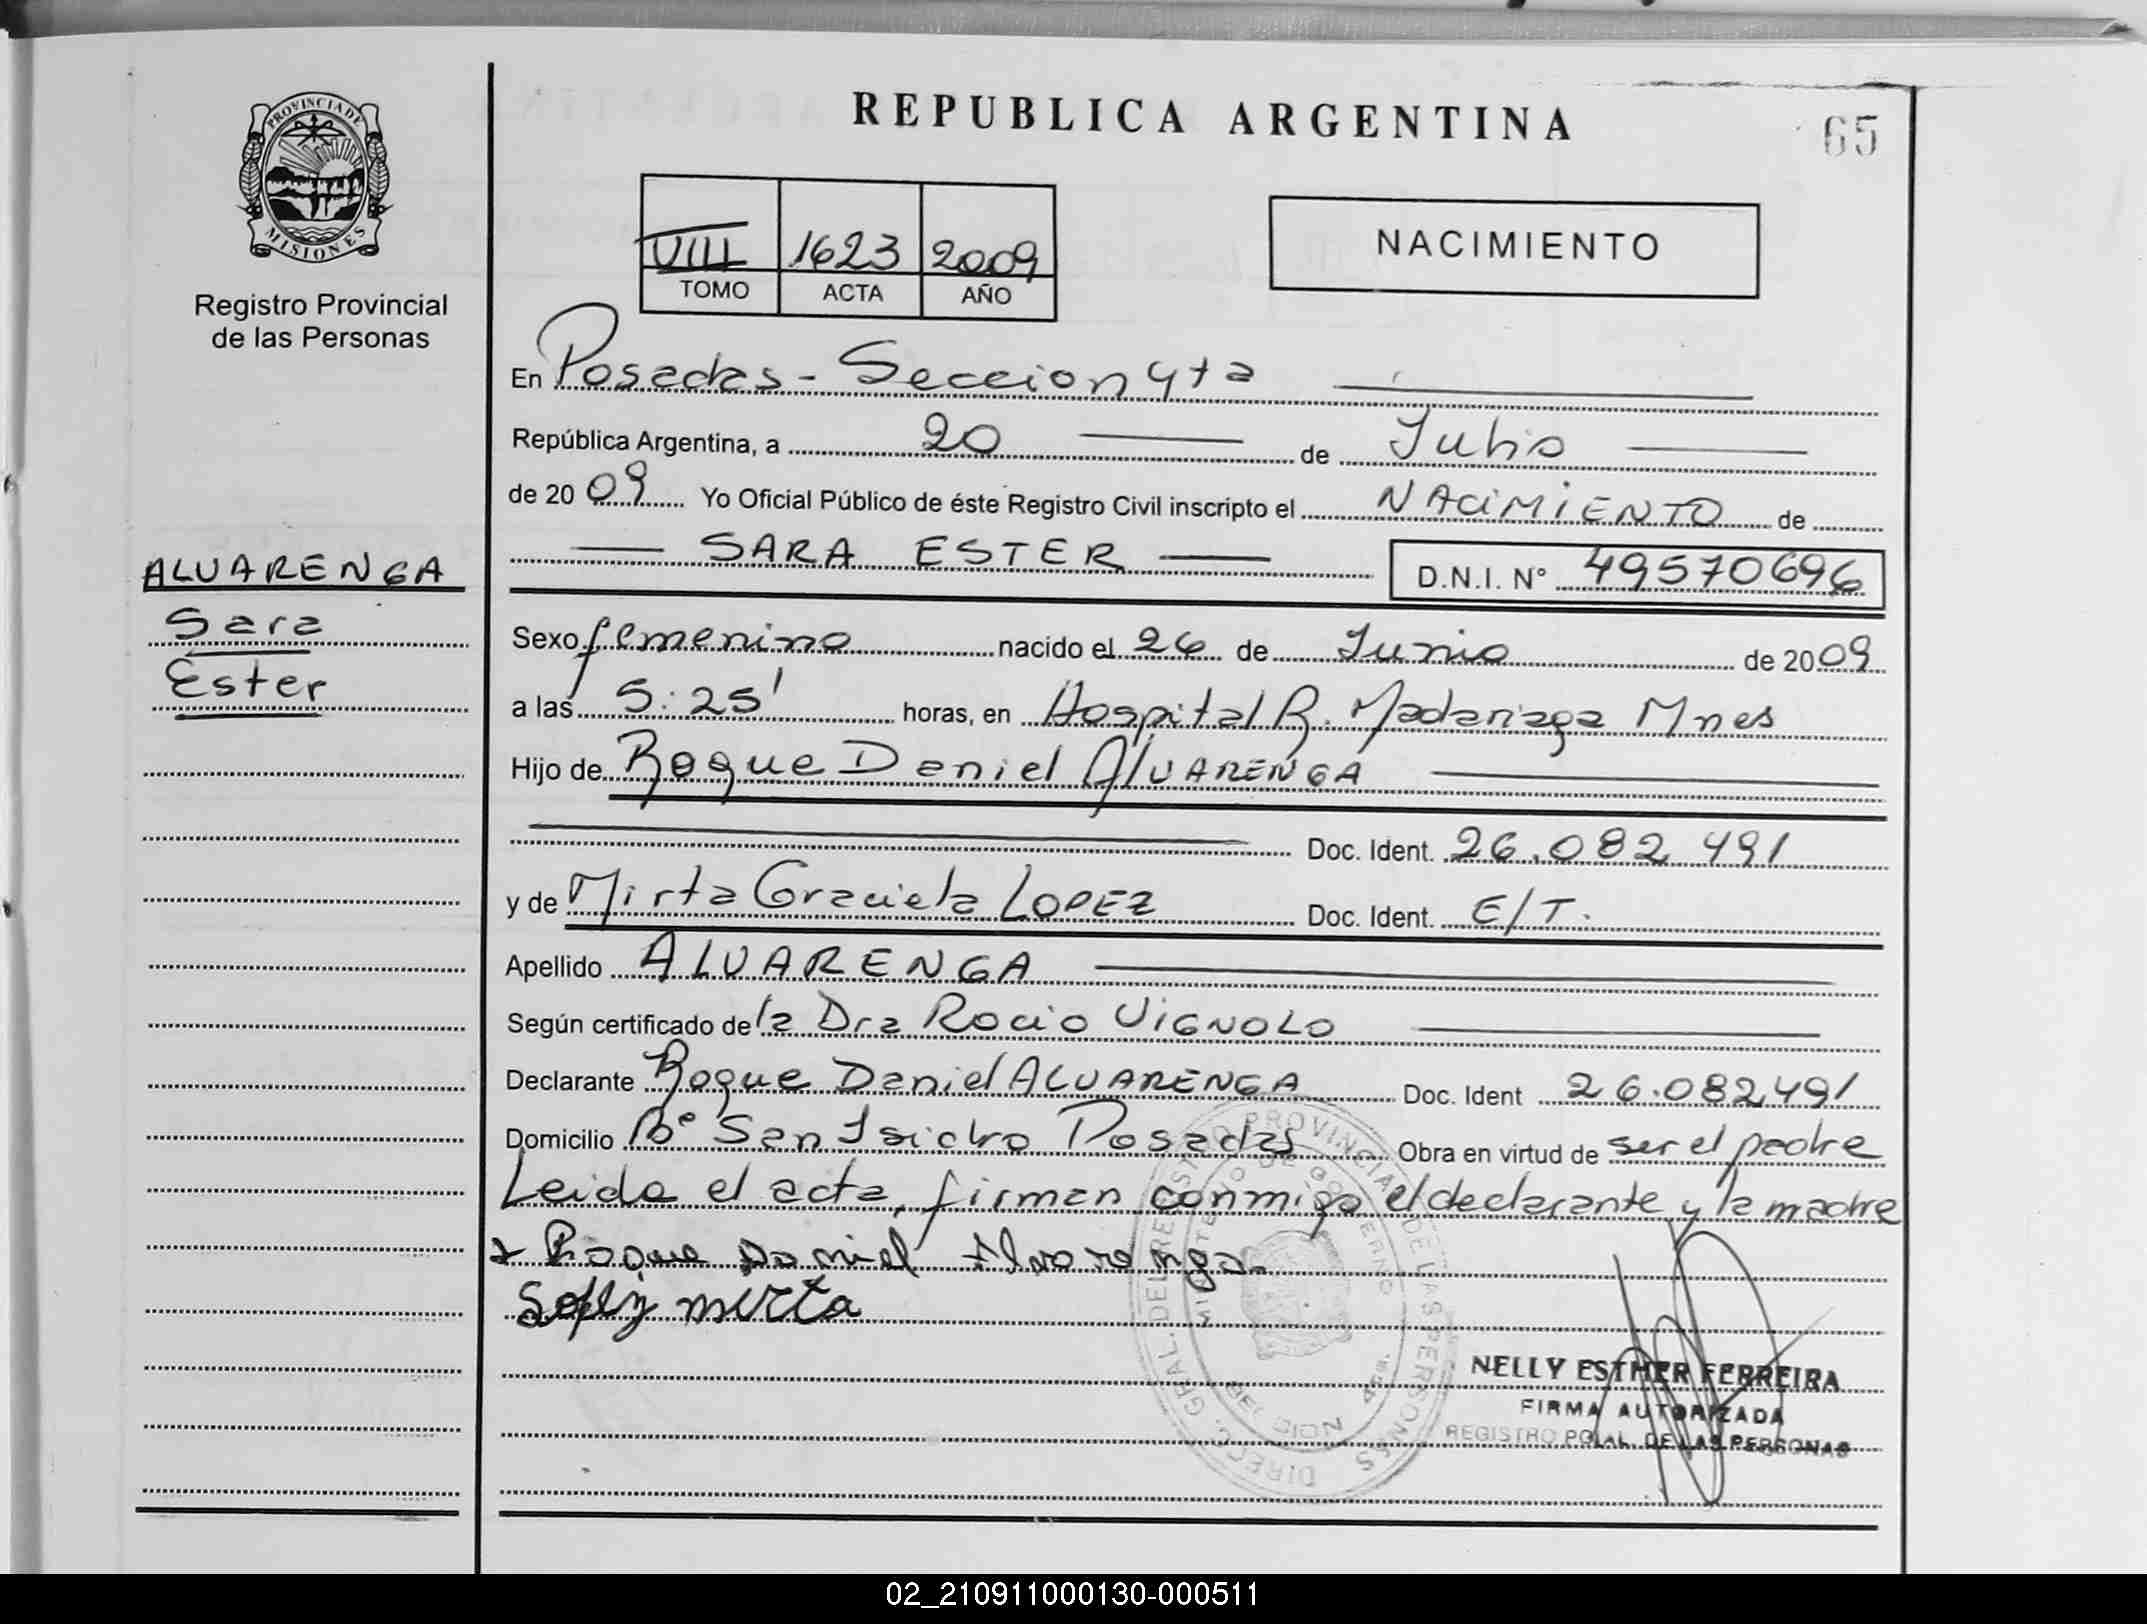 REPUBLICA ARGENTINA
65
PROVINCIA DE
MISIONES
Registro Provincial
de las Personas
VIII 1623 2009
TOMO ACTA AÑO
NACIMIENTO
En Posadas - Seccion 4ta
República Argentina, a 20 de Julio
de 2009 Yo Oficial Público de éste Registro Civil inscripto el NACIMIENTO de
SARA ESTER D.N.I. N° 49570696
ALVARENGA
Sara
Ester
Sexo femenino nacido el 26 de Junio de 2009
a las 5:25' horas, en Hospital R. Madariaga Mnes
Hijo de Roque Daniel ALVARENGA
Doc. Ident. 26.082 491
y de Mirta Graciela LOPEZ Doc. Ident. E/T.
Apellido ALVARENGA
Según certificado de la Dra Rocio VIGNOLO
Declarante Roque Daniel ALVARENGA Doc. Ident 26.082491
Domicilio Bº San Isidro Posadas Obra en virtud de ser el padre
Leida el acta, firman conmigo el declarante y la madre
Roque Daniel Alvarenga
Lopez mirta
DIREC. GRAL. DEL REGISTRO PROVINCIAL DE LAS PERSONAS
MINISTERIO DE GOBIERNO
NELLY ESTHER FERREIRA
FIRMA AUTORIZADA
REGISTRO PCIAL. DE LAS PERSONAS
02_210911000130-000511